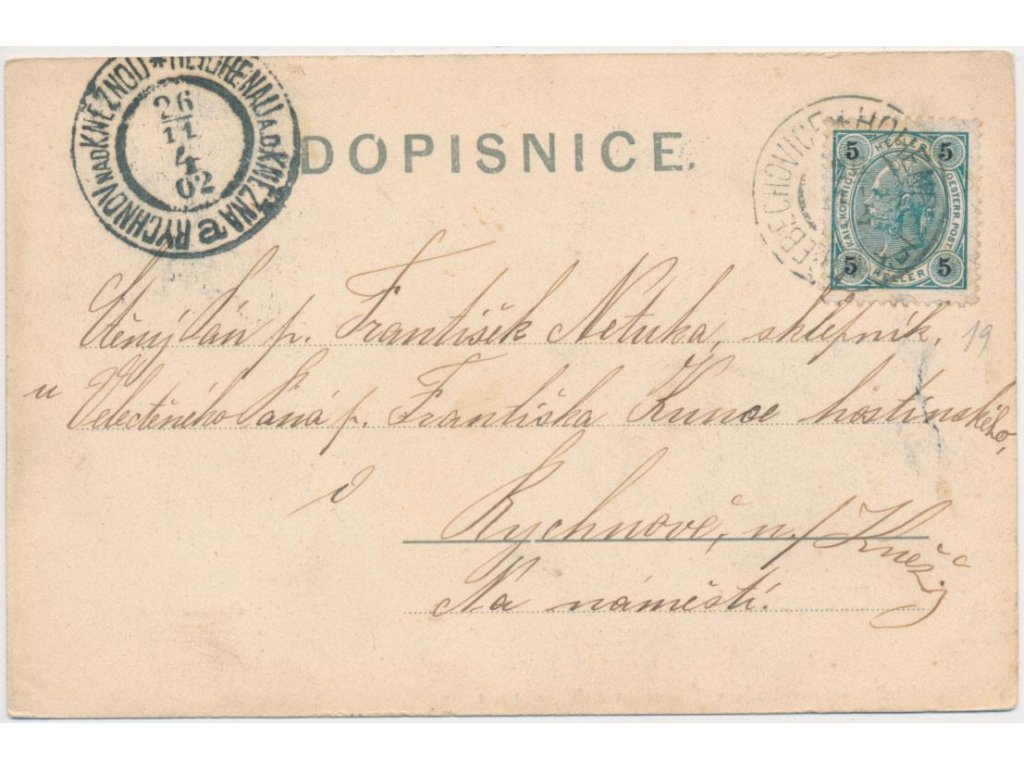 REICHENAU A.D. KNĚŽNA
RYCHNOV NAD KNĚŽNOU
26
11
4
02
DOPISNICE.
TŘEBECHOVICE * HOHEN
5 HELLER 5
KAIS. KOENIGL. OESTERR. POST.
5 HELLER 5
Ctěný Pán p. František Netuka, sklepník,
19
u Velectěného Pana p. Františka Kunce hostinského,
v
Rychnově, n./Kněž.
Na náměstí.